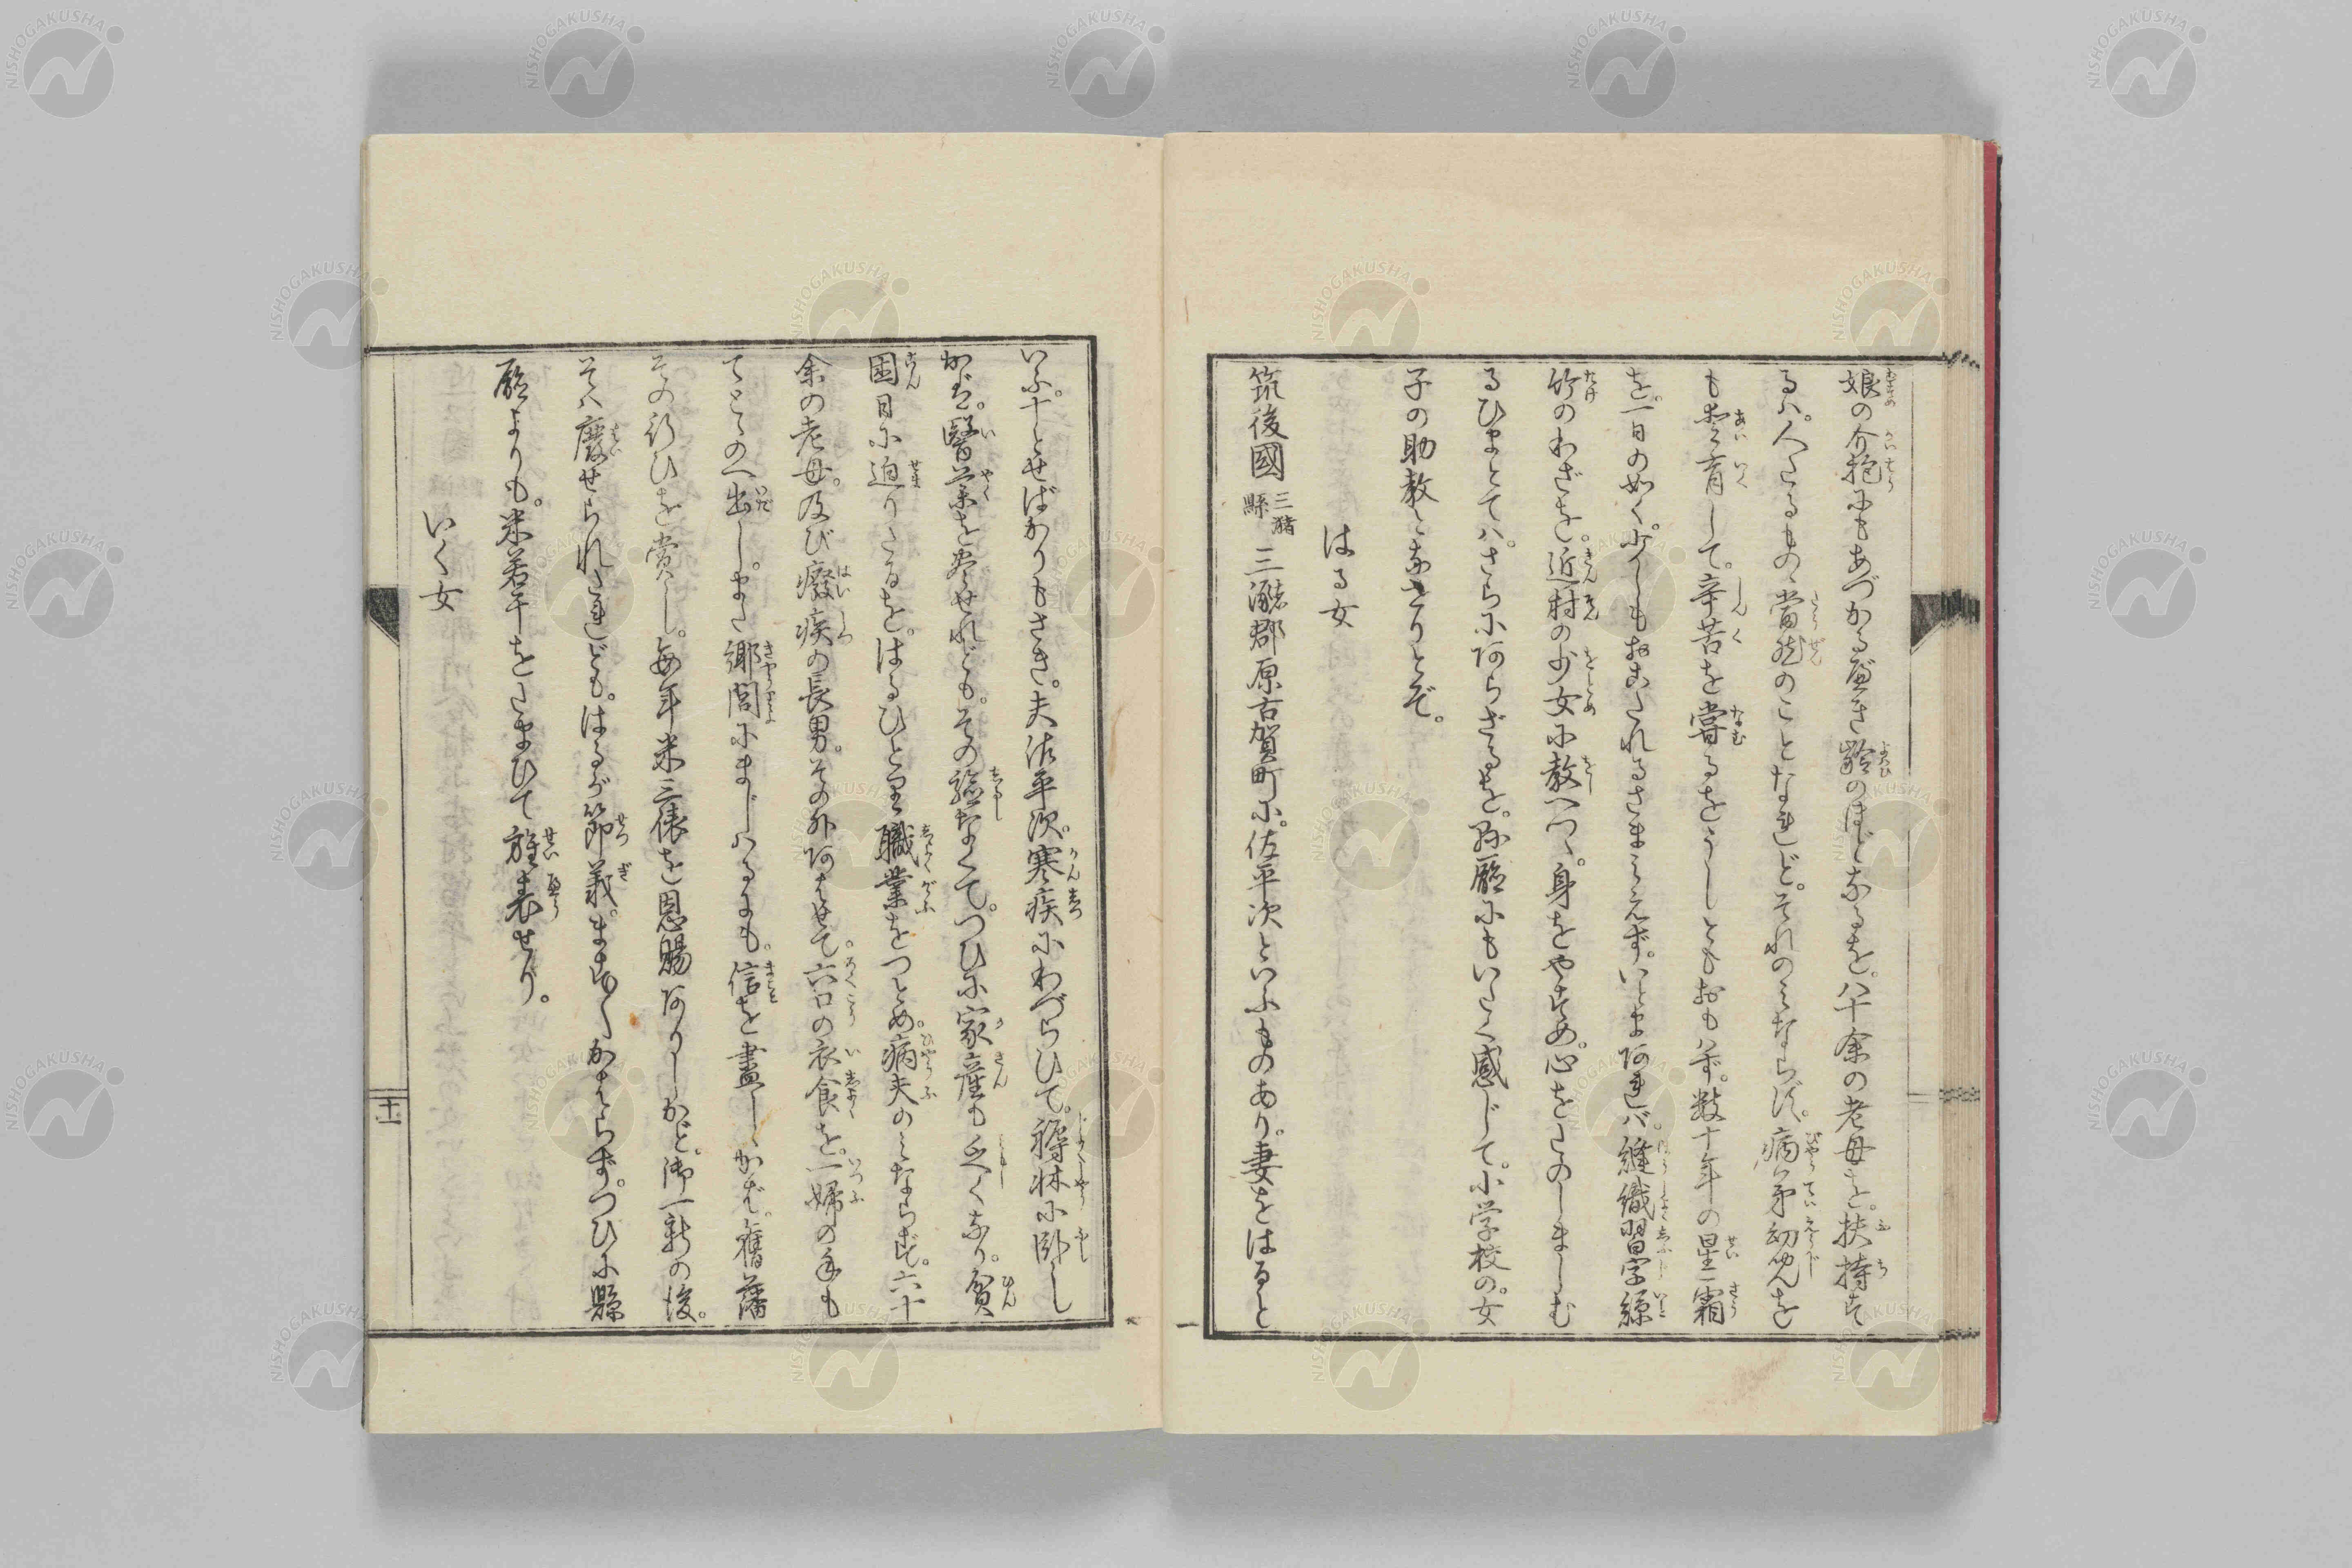 娘の介抱にもあづかる屋き齢のほどなるを。八十余の老母を。扶持す
るハ。人たるものゝ當然のことなれど。それのミならず。病弟幼姪を
も。愛育して。辛苦を嘗るをうしともおもハず。数十年の星霜
を。一日の如く。少しもおこたれるさまミえず。いとまあれバ。縫織習字絲
竹のわざを。近村の少女に教へつゝ。身をやすめ。心をたのしましむ
るひまとてハ。さらにあらざるを。縣廳にもいたく感じて。小学校の。女
子の助教となせりとぞ。
はる女
筑後國 三猪縣 三瀦郡原古賀町に。佐平次といふものあり。妻をはると
いふ。十とせばかりもさき。夫佐平次。寒疾にわづらひて。褥牀に臥し
かば。醫薬を尽せれども。その驗なくて。つひに家産も乏くなり。貧
困日に迫りたるを。はるひとり職業をつとめ。病夫のミならず。六十
余の老母。及び癈疾の長男。その外あはせて。六口の衣食を。一婦の手も
てとゝのへ出し。また郷閭にまじハるにも。信を盡しゝかば。舊藩
その行ひを賞し。毎年米三俵を恩賜ありしかど。御一新の後。
そハ廢せられたれども。はるが節義。ますますかはらず。つひに縣
廳よりも。米若干をたまひて旌表せり。
いく女
十一
NISHOGAKUSHA